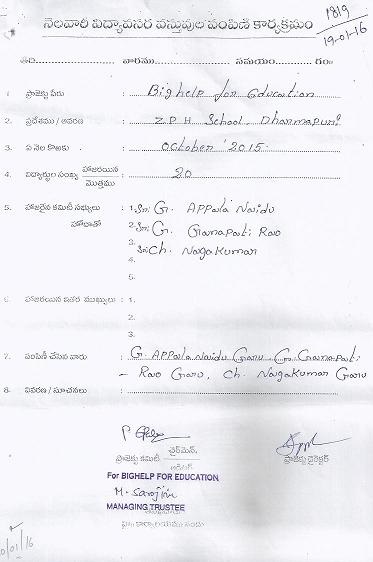 నెలవారీ విద్యావసర వస్తువుల పంపిణీ కార్యక్రమం
1819
19-01-16
తేది.................... వారము.................... సమయం.................... గం॥
1. ప్రాజెక్టు పేరు : Bighelp for Education
2. ప్రదేశము / ఆవరణ : Z P H School, Dharmapuri
3. ఏ నెల కొఱకు : October '2015.
4. విద్యార్థుల సంఖ్య హాజరయిన / మొత్తము : 20
5. హాజరైన కమిటీ సభ్యులు : 1. Sri G. Appala Naidu
హోదాతో 2. Sri G. Ganapati Rao
3. Sri Ch. Nagakumar
4.
5.
6. హాజరయిన ఇతర ముఖ్యులు : 1.
2.
3.
7. పంపిణీ చేసిన వారు : G. Appala Naidu Garu G. Ganapati
- Rao Garu, Ch. Nagakumar Garu
8. వివరణ / సూచనలు :
ఛైర్మెన్,
ప్రాజెక్టు కమిటీ
ప్రాజెక్టు డైరెక్టర్
For BIGHELP FOR EDUCATION
M. Sarojini
MANAGING TRUSTEE